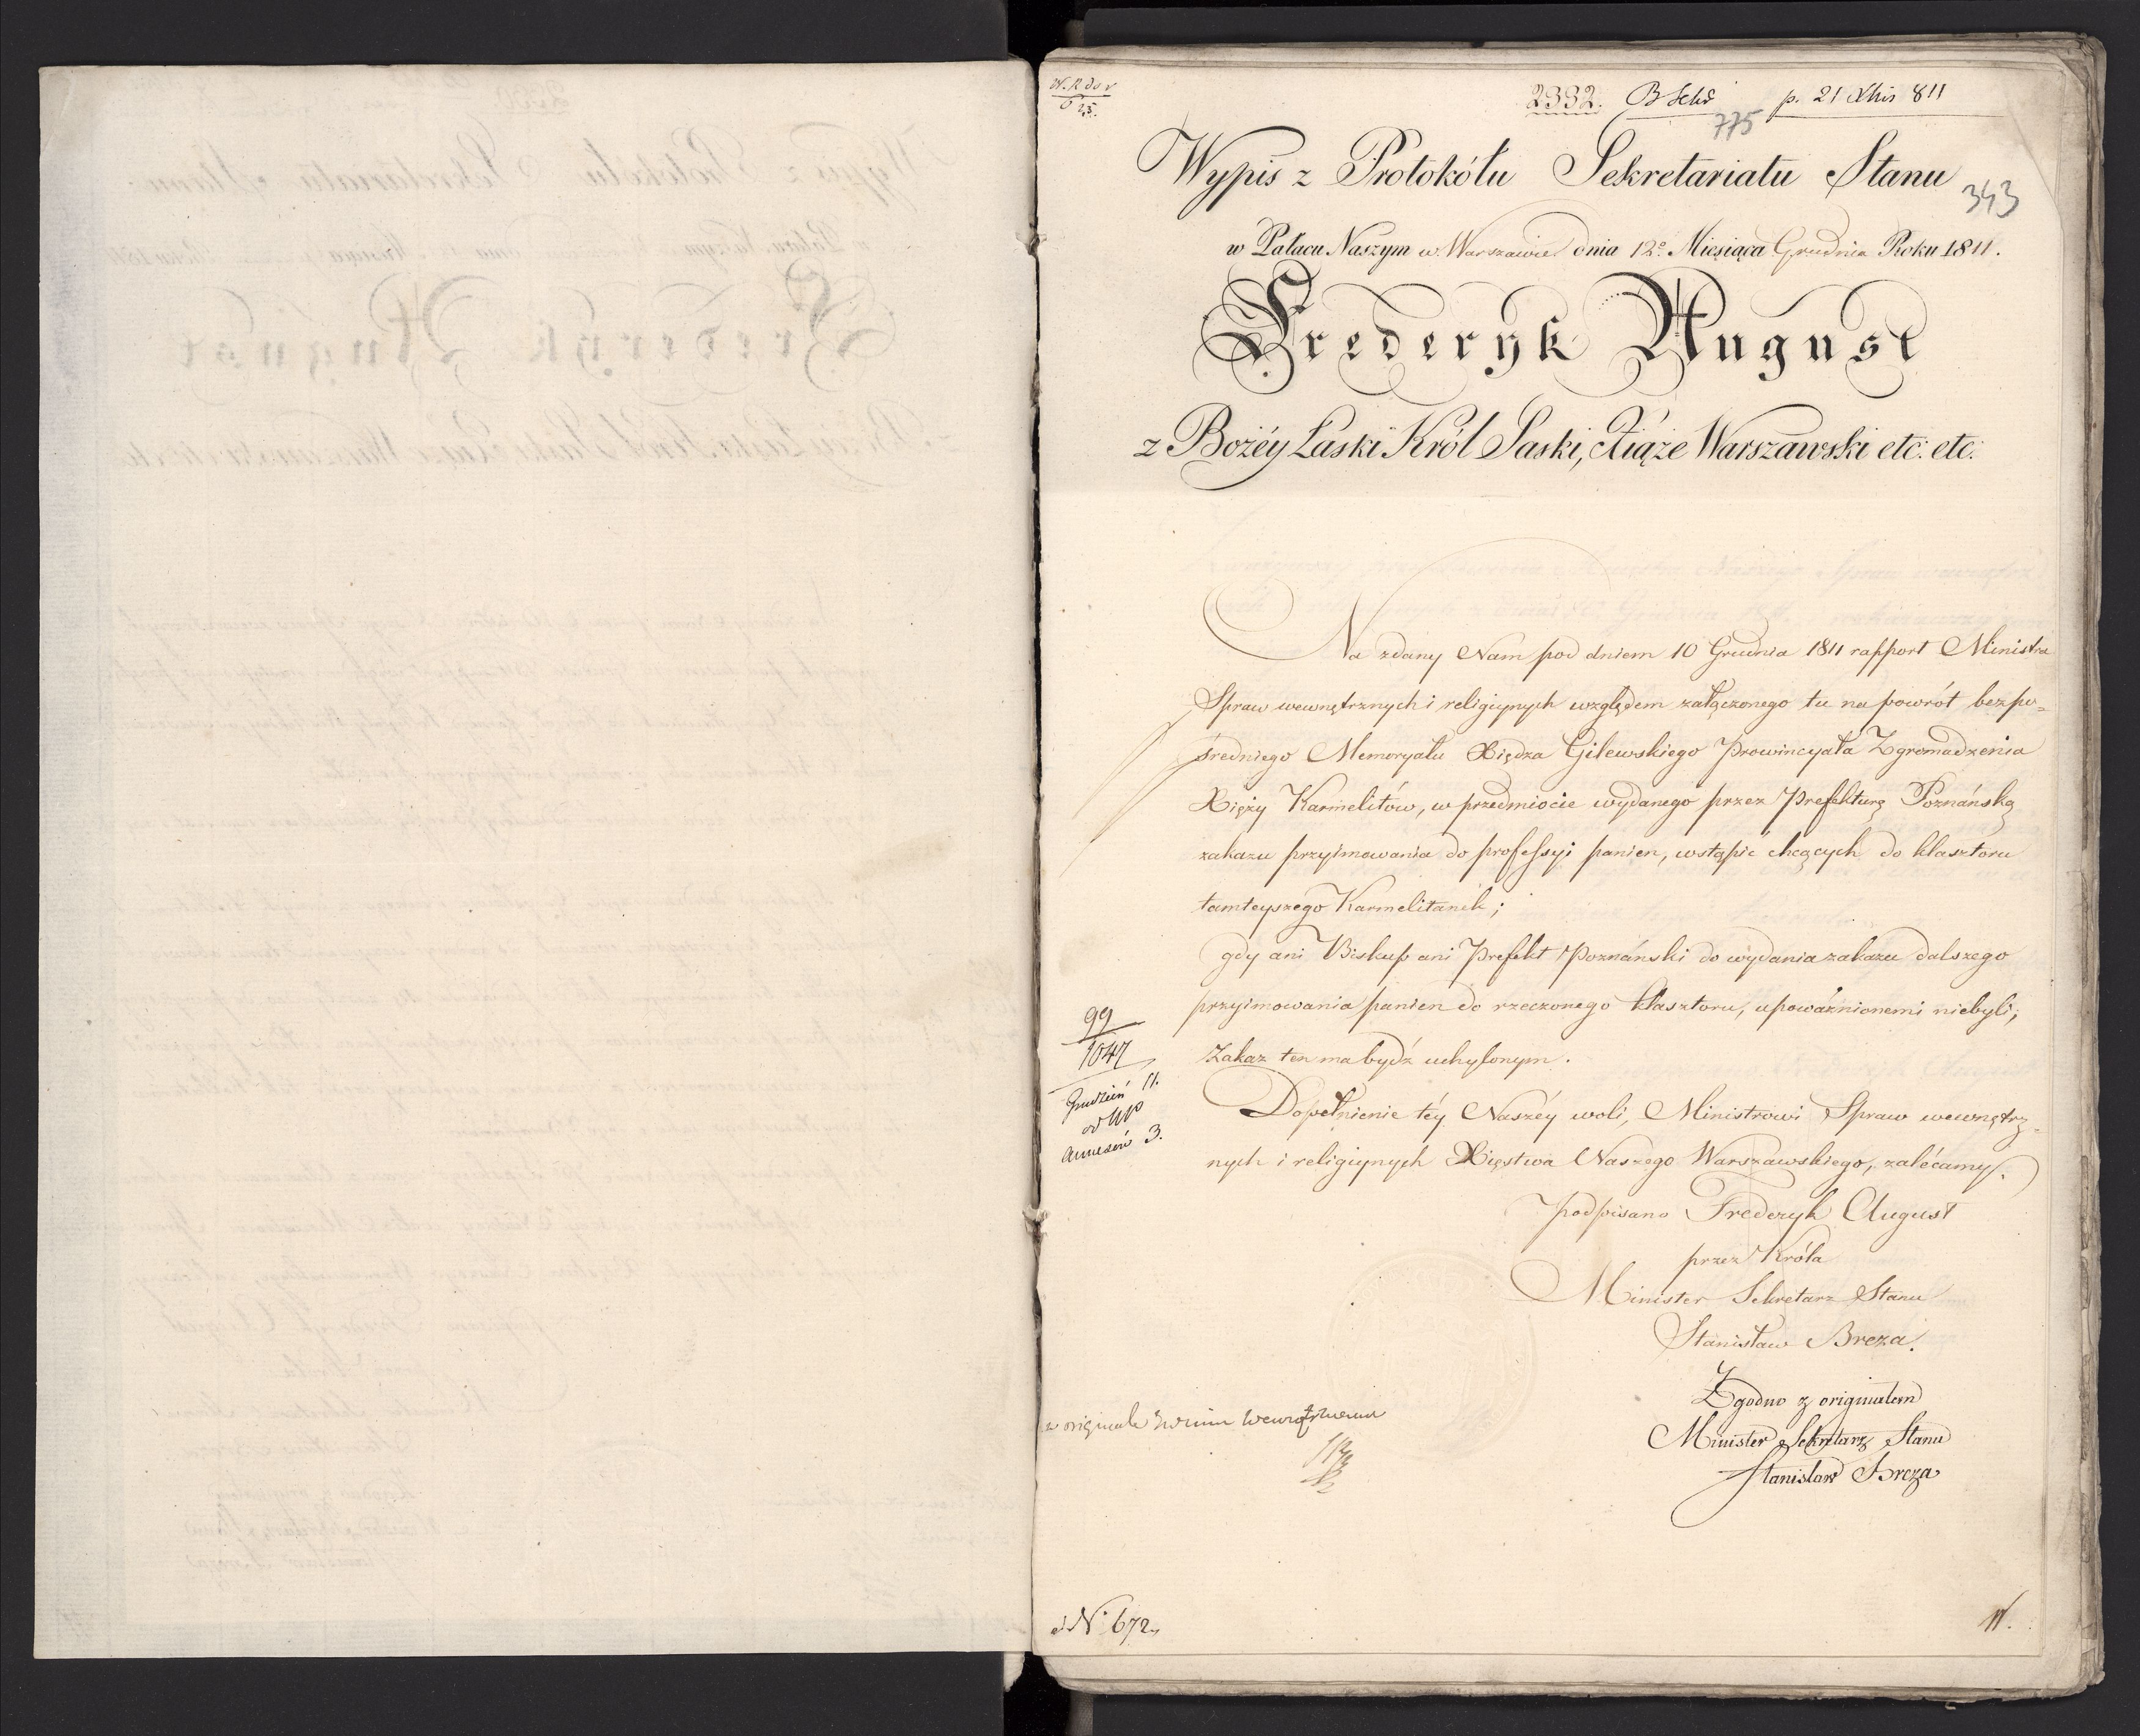 2332. p. 21 Xbris 811
775
Wypis z Protokółu Sekretariatu Stanu
343
w Pałacu Naszym w Warszawie dnia 12º Miesiąca Grudnia Roku 1811.
Frederyk August
z Bożéy Łaski Król Saski, Xiąże Warszawski etc: etc:
Na zdany Nam pod dniem 10 Grudnia 1811 rapport Ministra
Spraw wewnętrznych i religiynych względem załączonego tu na powrót bezpo=
średniego Memoryału Xiędza Gilewskiego Prowincyała Zgromadzenia
Xięży Karmelitów, w przedmiocie wydanego przez Prefekturę Poznańską
zakazu przyimowania do professyi panien, wstąpić chcących do klasztoru
tamteyszego Karmelitanek;
gdy ani Biskup ani Prefekt Poznański do wydania zakazu dalszego
przyimowania panien do rzeczonego klasztoru, upoważnionemi niebyli;
Zakaz ten ma bydź uchylonym.
Dopełnienie téy Naszéy woli, Ministrowi Spraw wewnętrz=
nych i religiynych Xięstwa Naszego Warszawskiego, zalécamy.
podpisano Frederyk August
przez Króla
Minister Sekretarz Stanu
Stanisław Breza.
Zgodno z originałem
Minister Sekretarz Stanu
Stanisław Breza
99
1047
Grudzień 11.
annexów 3.
N. 672.